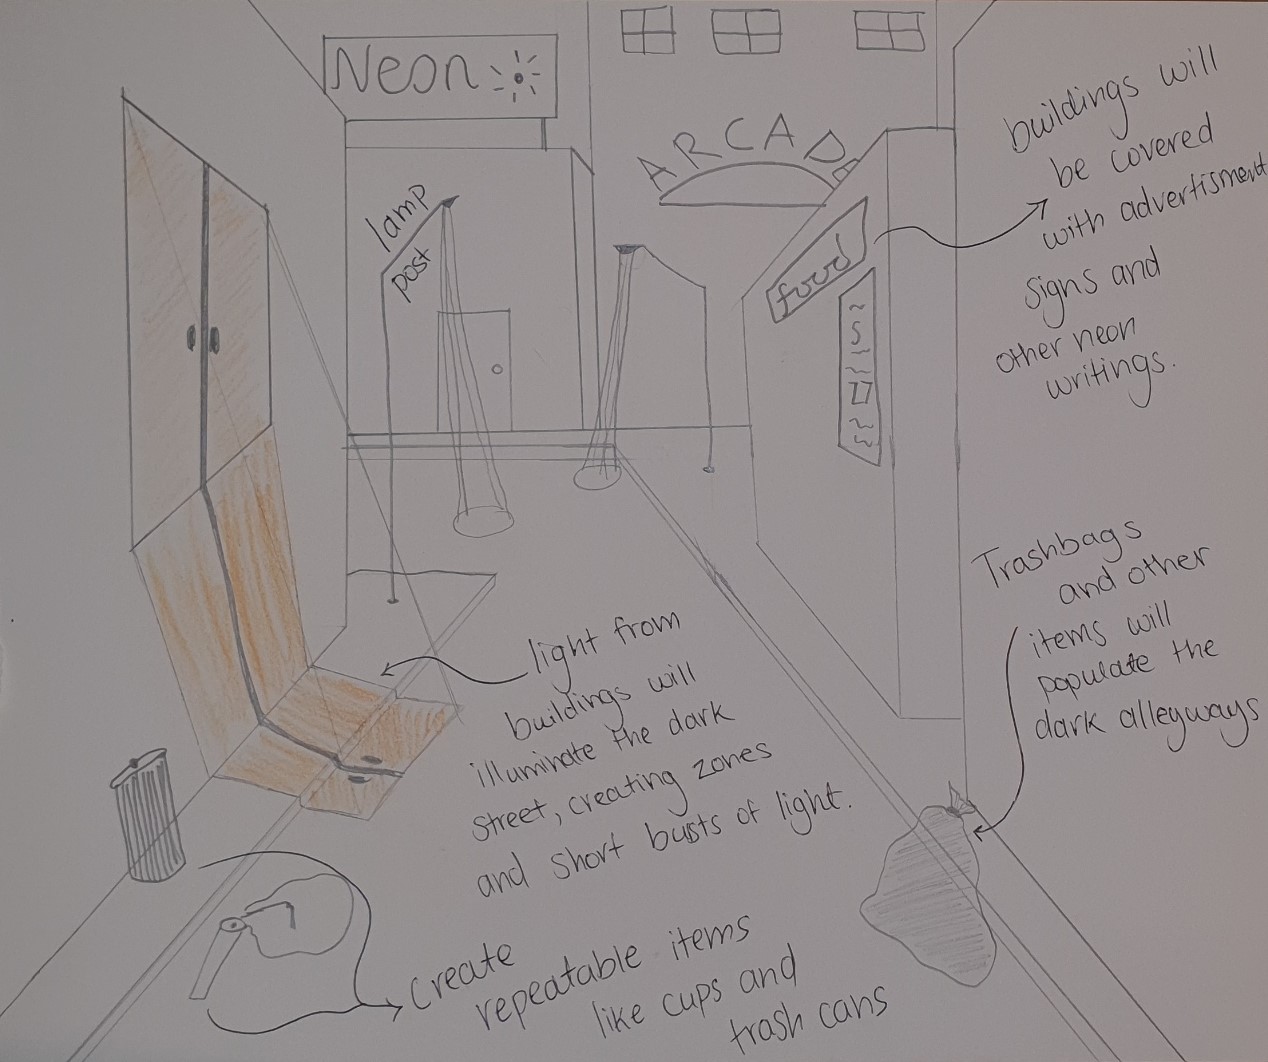 Neon
ARCADE
lamp
post
food
buildings will
be covered
with advertisment
signs and
other neon
writings.
Trashbags
and other
items will
populate the
dark alleyways
light from
buildings will
illuminate the dark
street, creating zones
and short busts of light.
Create
repeatable items
like cups and
trash cans